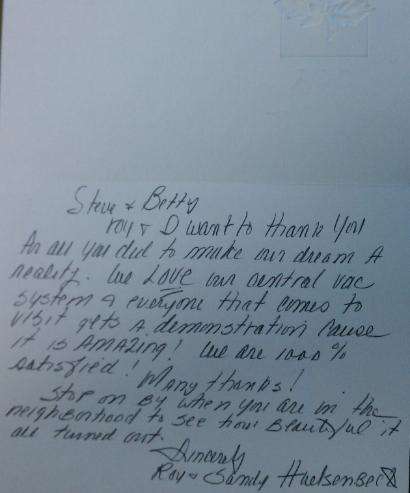 Steve & Betty
Roy & I want to thank you
for all you did to make our dream a
reality. We LOVE our central vac
system & everyone that comes to
visit gets a demonstration cause
it is AMAZING! We are 1000%
satisfied! Many thanks!
Stop on by when you are in the
neighborhood to see how beautiful it
all turned out.
Sincerely
Roy & Sandy Huelsenbeck